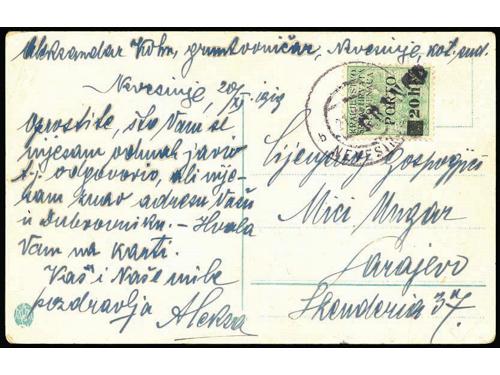 Aleksandar Kohn, gruntovničar, Nevesinje, kot. sud.
Nevesinje, 20/XI 1919
Oprostite, što Vam se
nijesam odmah javio
t.j. odgovorio, ali nije-
sam znao adresu Vašu
u Dubrovniku. – Hvala
Vam na karti.
Vaš i Naše mile
pozdravlja
Aleksa
KRALJEVSTVO
PORTO
20 h
NEVESINJE
Cijenjenoj Gospogjici
Mici Ungar
Sarajevo
Skenderia 37